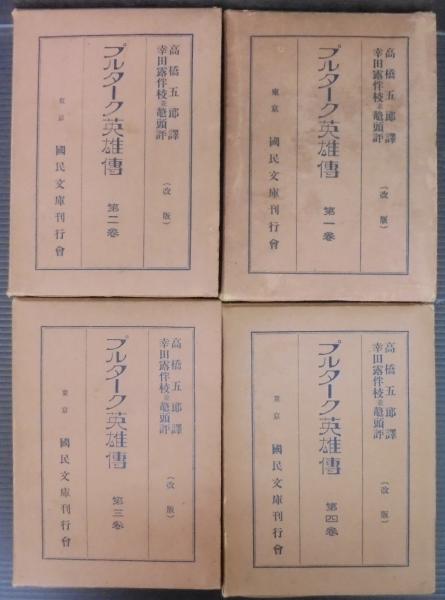 高橋五郎譯
幸田露伴校並鼇頭評
(改版)
プルターク英雄傳
第一卷
東京
國民文庫刊行會
高橋五郎譯
幸田露伴校並鼇頭評
(改版)
プルターク英雄傳
第二卷
東京
國民文庫刊行會
高橋五郎譯
幸田露伴校並鼇頭評
(改版)
プルターク英雄傳
第四卷
東京
國民文庫刊行會
高橋五郎譯
幸田露伴校並鼇頭評
(改版)
プルターク英雄傳
第三卷
東京
國民文庫刊行會